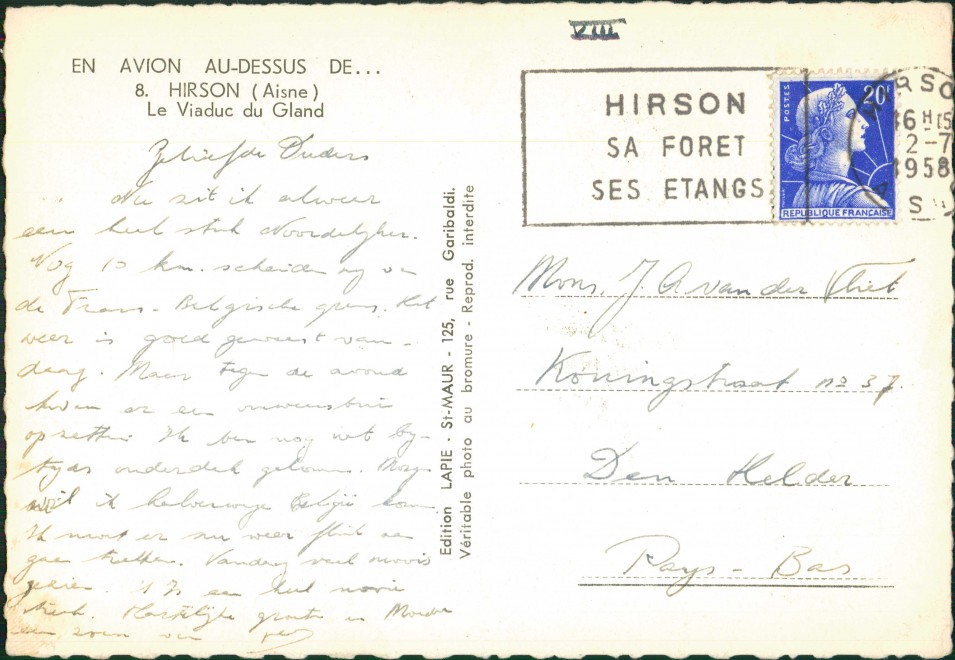 VIII
EN AVION AU-DESSUS DE...
8. HIRSON (Aisne)
Le Viaduc du Gland
HIRSON
SA FORET
SES ETANGS
POSTES
20F
REPUBLIQUE FRANÇAISE
HIRSO
16H15
2-7
1958
Geliefde Ouders
Nu zit ik alweer
een heel stuk Noordelijker.
Nog 10 km. scheiden mij van
de Frans-Belgische grens. Het
weer is goed geweest van-
daag. Maar tegen de avond
een onweersbui
opzetten. Ik ben nog net bij-
tijds onderdak gekomen. Morgen
wil ik halverwege België
Ik moet er nu weer flink aan
gaan trekken. Vandaag veel moois
gezien. 't Is een heel mooie
Hartelijke groeten
een zoen van
Edition LAPIE - St-MAUR - 125, rue Garibaldi.
Véritable photo au bromure - Reprod. interdite
Mons. J. A. van der Vliet
Koningstraat no 37.
Den Helder
Pays-Bas